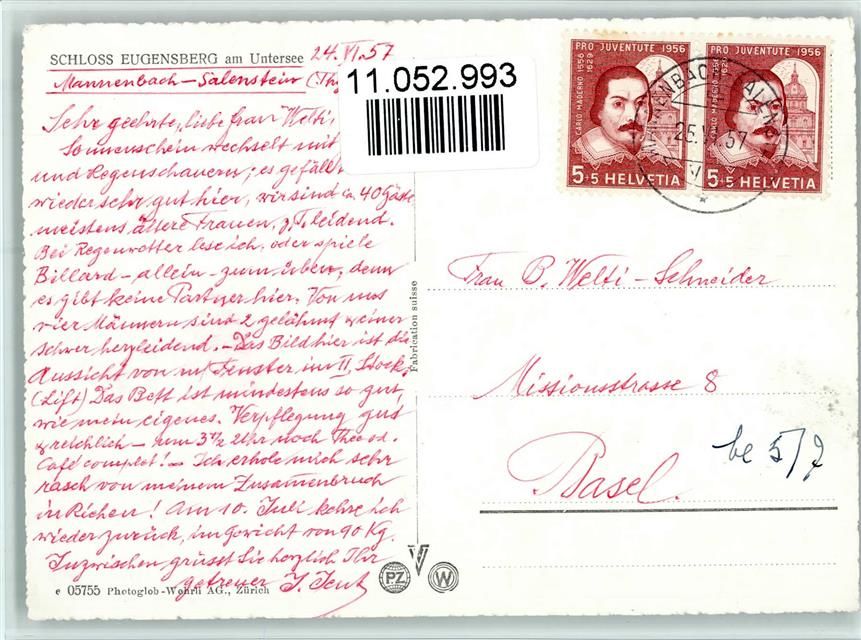 SCHLOSS EUGENSBERG am Untersee 24.VI.57
Mannenbach-Salenstein (Thg
11.052.993
Sehr geehrte, liebe Frau Welti,
Sonnenschein wechselt mit
und Regenschauern; es gefällt
wieder sehr gut hier, wir sind ca. 40 Gäste
meistens ältere Frauen, z.T. leidend.
Bei Regenwetter lese ich, oder spiele
Billard – allein – zum üben, denn
es gibt keine Partner hier. Von uns
vier Männern sind 2 gelähmt u. einer
schwer herzleidend. – Das Bild hier ist die
Aussicht von m/ Fenster im II. Stock.
(Lift) Das Bett ist mindestens so gut,
wie mein eigenes. Verpflegung gut
& reichlich – um 3½ Uhr noch Thee od.
Café complet! – Ich erhole mich sehr
rasch von meinem Zusammenbruch
in Riehen! Am 10. Juli kehre ich
wieder zurück, im Gewicht von 90 Kg.
Inzwischen grüsst Sie herzlich Ihr
getreuer J.
e 05755 Photoglob-Wehrli AG., Zürich
Fabrication suisse
PZ
W
PRO JUVENTUTE 1956
CARLO MADERNO 1556 1629
5+5 HELVETIA
PRO JUVENTUTE 1956
CARLO MADERNO 1556 1629
5+5 HELVETIA
25.VI.57
Frau B. Welti-Schneider
Missionsstrasse 8
Basel.
be 5/7